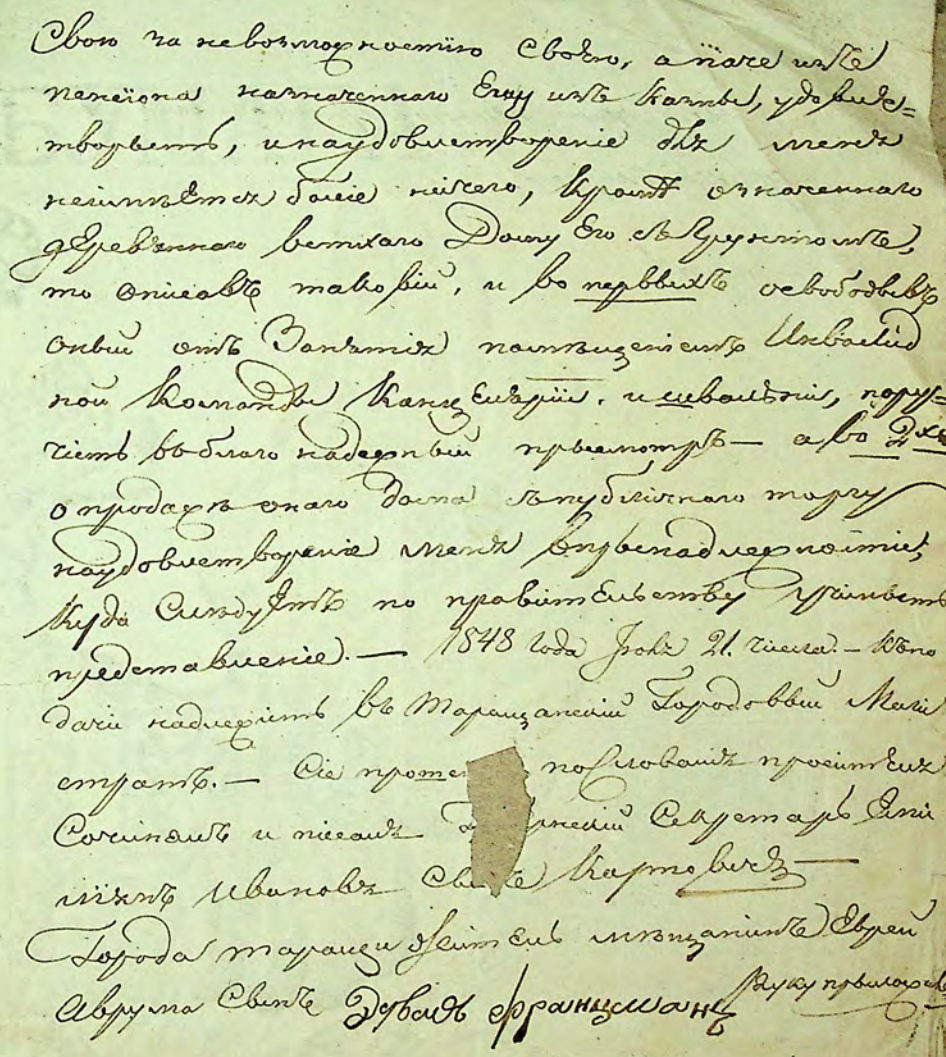 Свою за невозможностію своею, а паче изъ
пенсіона назначеннаго Ему изъ Казны, удовле=
творьетъ, и наудовлетвореніе для меня
неимѣется болѣе ничего, кромѣ означеннаго
деревяннаго ветхаго Дому Его съ Грунтомъ,
то описавъ таковый, и во первыхъ освободывъ
оный отъ Занятія помѣщеніемъ Инвалид
ной Команды Канцеляріи, пору=
чить въ благо надежный прысмотръ — а во 2хъ
о продажѣ онаго дома съ публичнаго торгу
наудовлетвореніе меня впрынадлежности,
куда Слѣдуетъ по правительству учиныть
представленіе. — 1848 года Іюля 21. числа. — Къ по
дачи надлежитъ въ Таращанскій Городовый Маги
стратъ. — Сіе по Словамъ просителя
Сочинялъ и писалъ Секретарь
Ивановъ Сынъ Карповичъ —
Города Таращи Житель мѣщанинъ Еврей
Аврума Сынъ Францманъ Руку прыложилъ